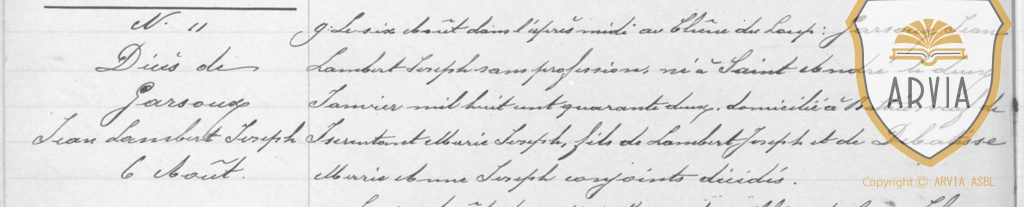 N. 11
Décès de
Garsoux
Jean Lambert Joseph
6 Août.
9. Le six Août dans l'après midi au Chêne du Loup: Garsoux Jean
Lambert Joseph sans profession, né à Saint André le deux
Janvier mil huit cent quarante deux. domicilié à de
et Marie Joseph, fils de Lambert Joseph et de Debatisse
Marie Anne Joseph conjoints décédés.
ARVIA
Copyright © ARVIA ASBL